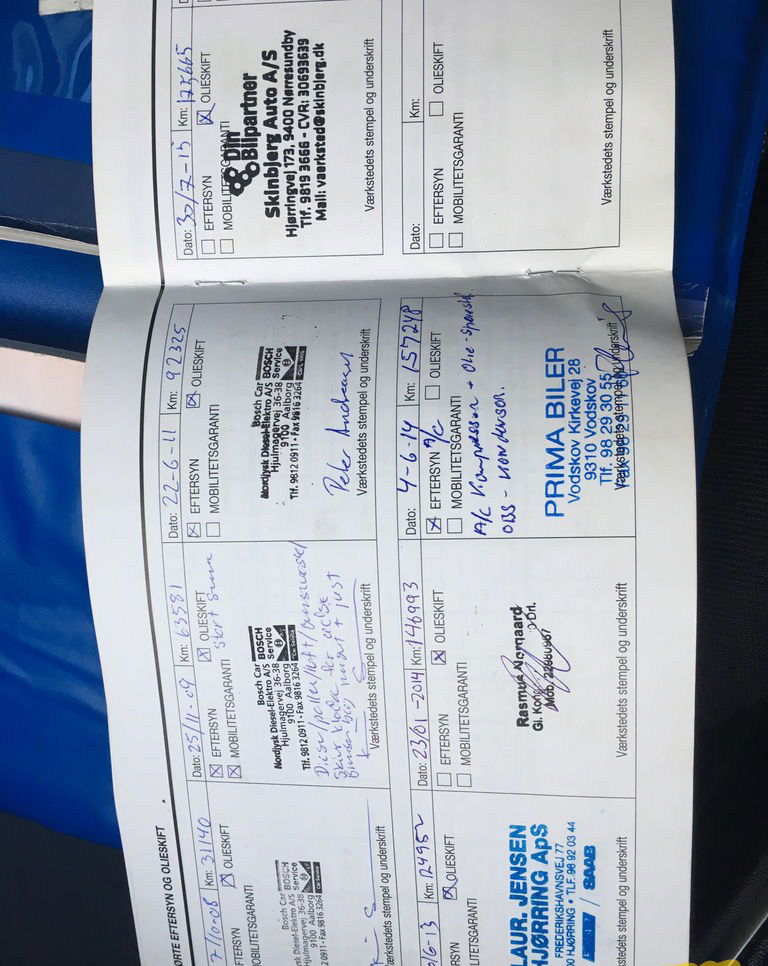 ØRTE EFTERSYN OG OLIESKIFT
7/10-08 Km: 31140
FTERSYN OLIESKIFT
MOBILITETSGARANTI
Bosch Car BOSCH
Nordjysk Diesel-Elektro A/S Service
Hjulmagervej 36-38
9100 Aalborg
Tlf. 9812 0911 - Fax 9816 3264
Værkstedets stempel og underskrift
Dato: 25/11-09 Km: 63581
EFTERSYN OLIESKIFT
MOBILITETSGARANTI stort
Bosch Car BOSCH
Nordjysk Diesel-Elektro A/S Service
Hjulmagervej 36-38
9100 Aalborg
Tlf. 9812 0911 - Fax 9816 3264
Værkstedets stempel og underskrift
Dato: 22-6-11 Km: 92325
EFTERSYN OLIESKIFT
MOBILITETSGARANTI
Bosch Car BOSCH
Nordjysk Diesel-Elektro A/S Service
Hjulmagervej 36-38
9100 Aalborg
Tlf. 9812 0911 - Fax 9816 3264
Peter Andreasen
Værkstedets stempel og underskrift
Dato: 30/7-15 Km: 175665
EFTERSYN OLIESKIFT
MOBILITETSGARANTI
Din
Bilpartner
Skinbjerg Auto A/S
Hjørringvej 173, 9400 Nørresundby
Tlf. 9819 3666 - CVR: 30693639
Mail: vaerksted@skinbjerg.dk
Værkstedets stempel og underskrift
/6-13 Km: 124952
ERSYN OLIESKIFT
ILITETSGARANTI
LAUR. JENSEN
HJØRRING ApS
FREDERIKSHAVNSVEJ 77
HJØRRING • TLF. 98 92 03 44
/ SAAB
stedets stempel og underskrift
Dato: 23/01-2014 Km: 146993
EFTERSYN OLIESKIFT
MOBILITETSGARANTI
Rasmus Nørgaard
Gl. Drl.
Mob.
Værkstedets stempel og underskrift
Dato: 4-6-14 Km: 157248
EFTERSYN A/C OLIESKIFT
MOBILITETSGARANTI
A/C Kompressor + olie
OBS - kondensor.
PRIMA BILER
Vodskov Kirkevej 28
9310 Vodskov
Tlf. 98 29 30 55
Værkstedets stempel og underskrift
Dato: Km:
EFTERSYN OLIESKIFT
MOBILITETSGARANTI
Værkstedets stempel og underskrift